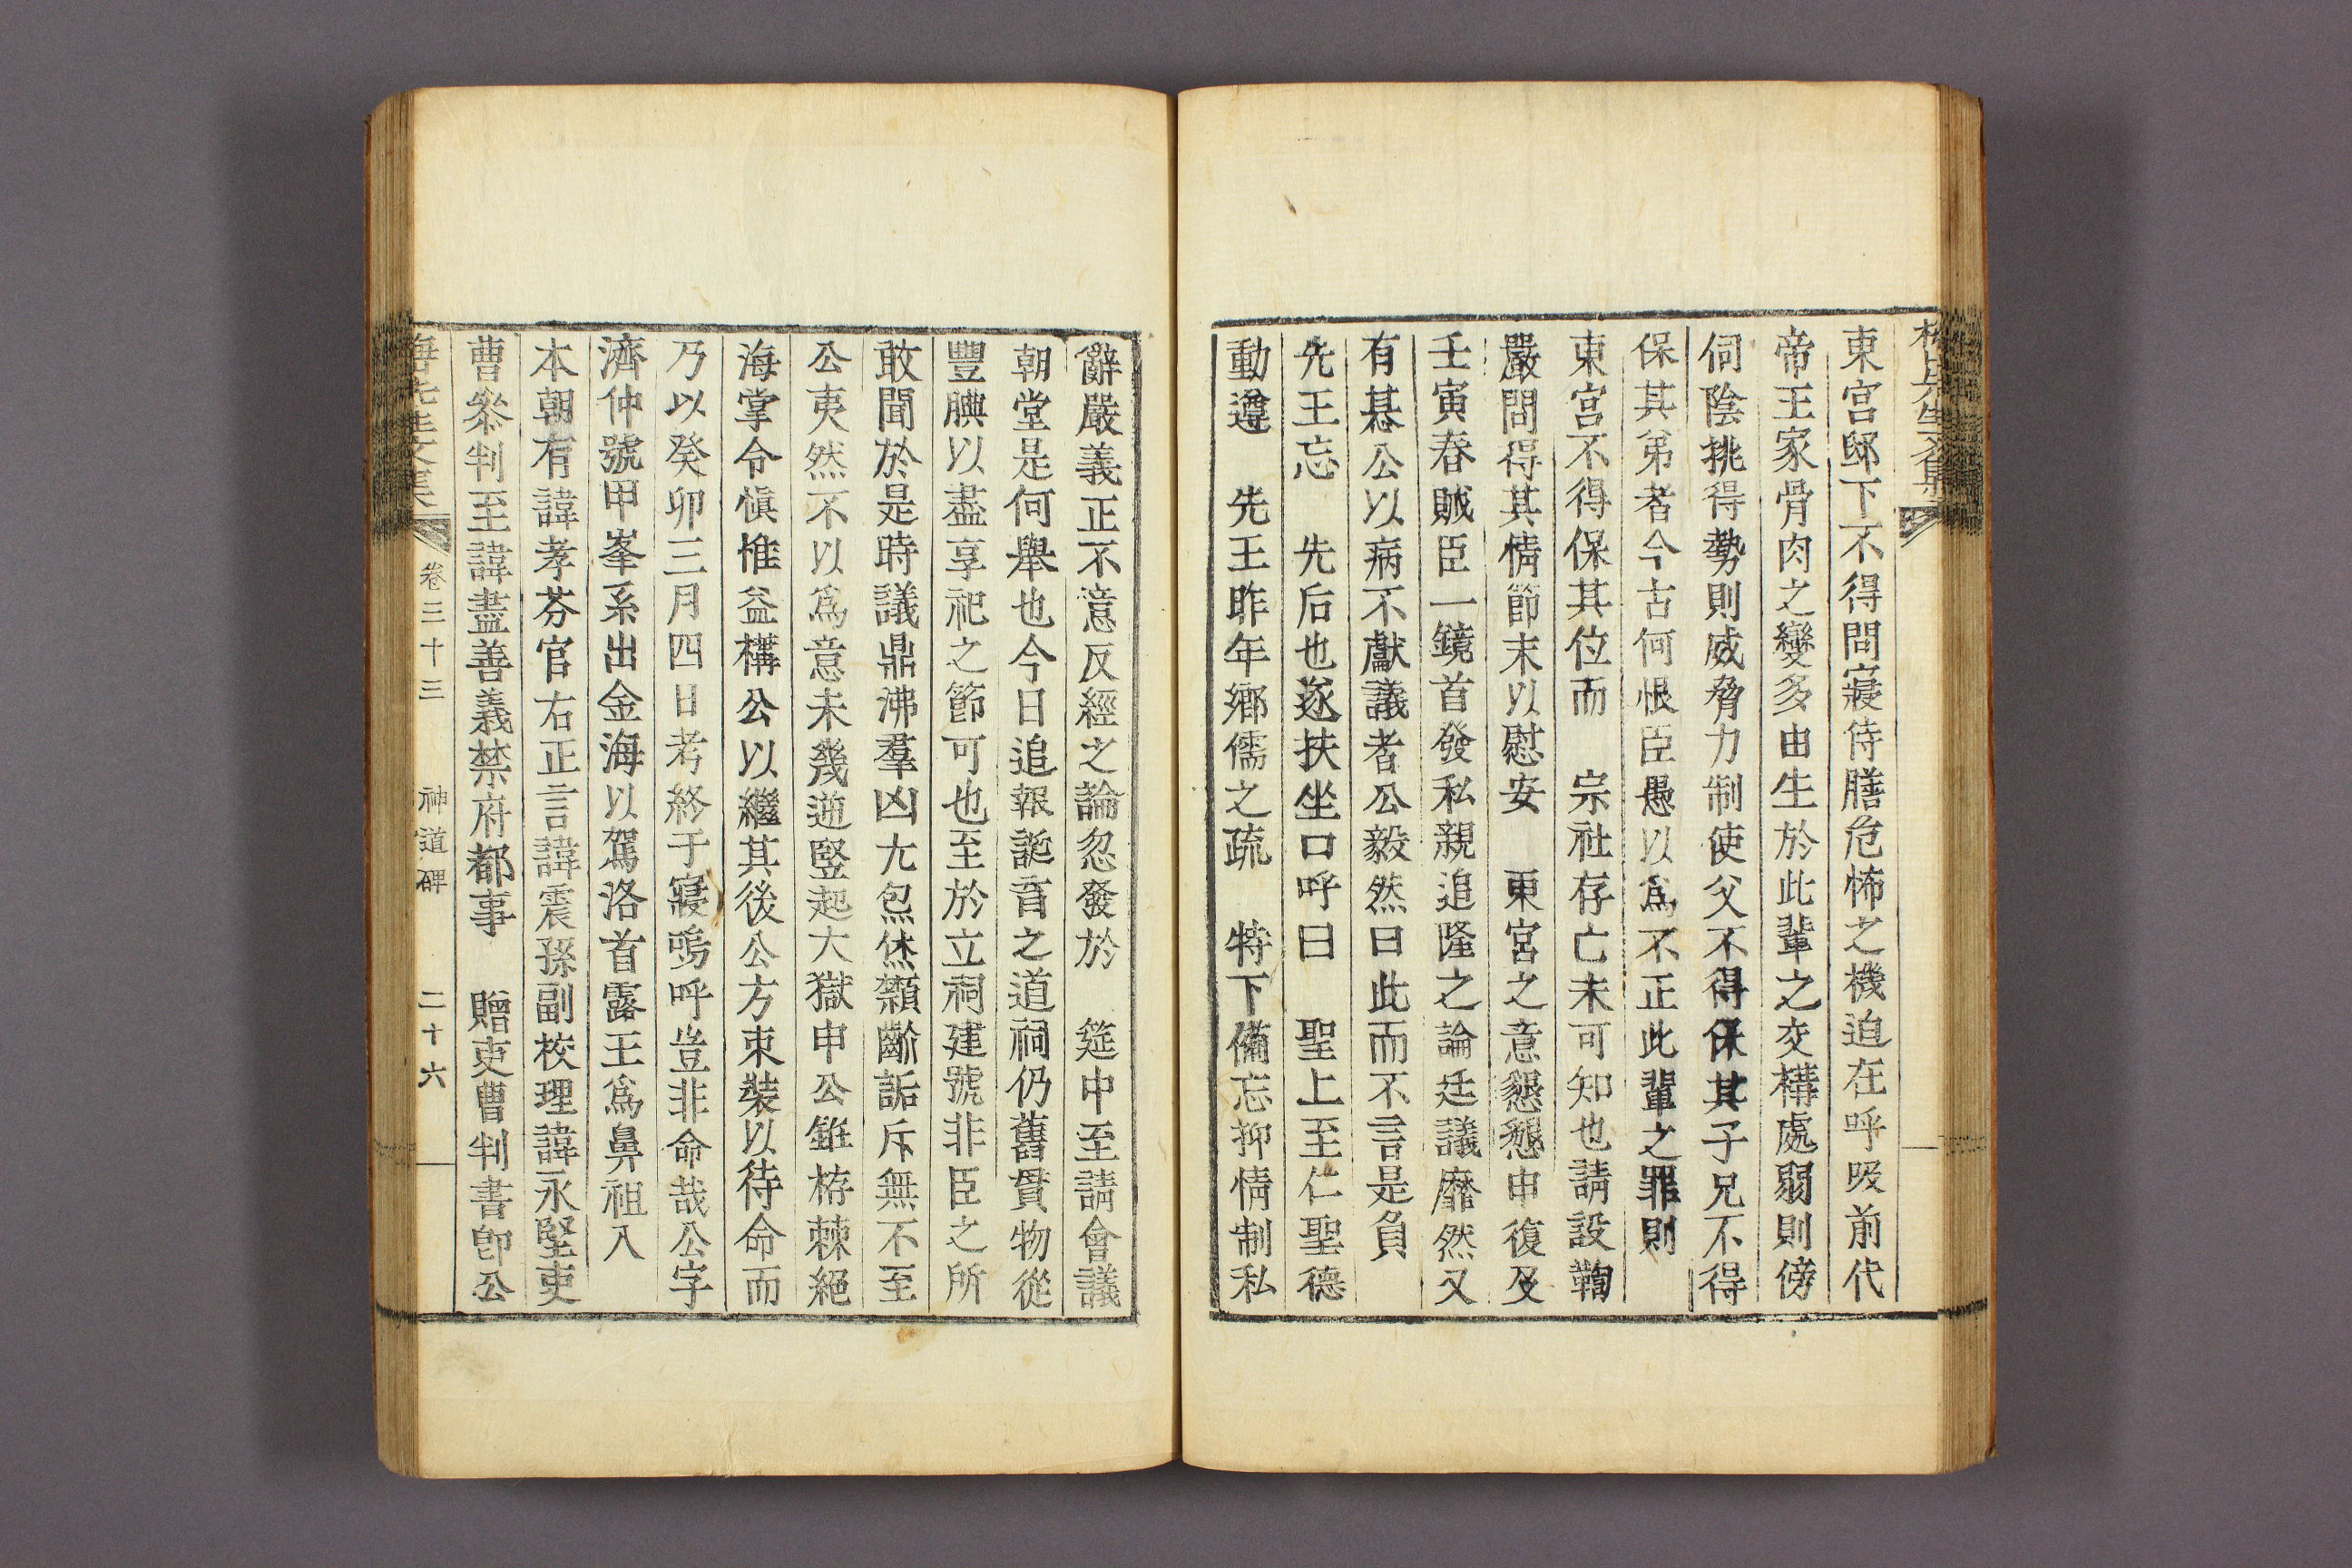 東宮邸下不得問寢侍膳危怖之機迫在呼吸前代
帝王家骨肉之變多由生於此輩之交構處弱則傍
伺陰挑得勢則威脅力制使父不得保其子兄不得
保其弟者今古何恨臣愚以爲不正此輩之罪則
東宮不得保其位而 宗社存亡未可知也請設鞫
嚴問得其情節末以慰安 東宮之意懇懇申復及
壬寅春賊臣一鏡首發私親追隆之論廷議靡然又
有惎公以病不獻議者公毅然曰此而不言是負
先王忘 先后也遂扶坐口呼曰 聖上至仁聖德
動遵 先王昨年鄉儒之疏 特下備忘抑情制私
辭嚴義正不意反經之論忽發於 筵中至請會議
朝堂是何舉也今日追報誕育之道祠仍舊貫物從
豐腆以盡享祀之節可也至於立祠建號非臣之所
敢聞於是時議鼎沸羣凶尤炰烋顙齡詬斥無不至
公夷然不以爲意未幾逆竪起大獄申公銋栫棘絕
海掌令愼惟益構公以繼其後公方束裝以待命而
乃以癸卯三月四日考終于寢嗚呼豈非命哉公字
濟仲號甲峯系出金海以駕洛首露王爲鼻祖入
本朝有諱孝芬官右正言諱震孫副校理諱永堅吏
曹參判至諱盡善義禁府都事 贈吏曹判書卽公
先生文集 卷三十三 神道碑 二十六